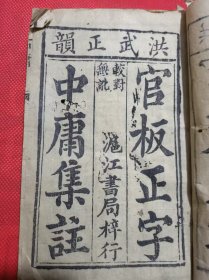 洪武正韻
官板正字
較對無訛
滙江書局梓行
中庸集註